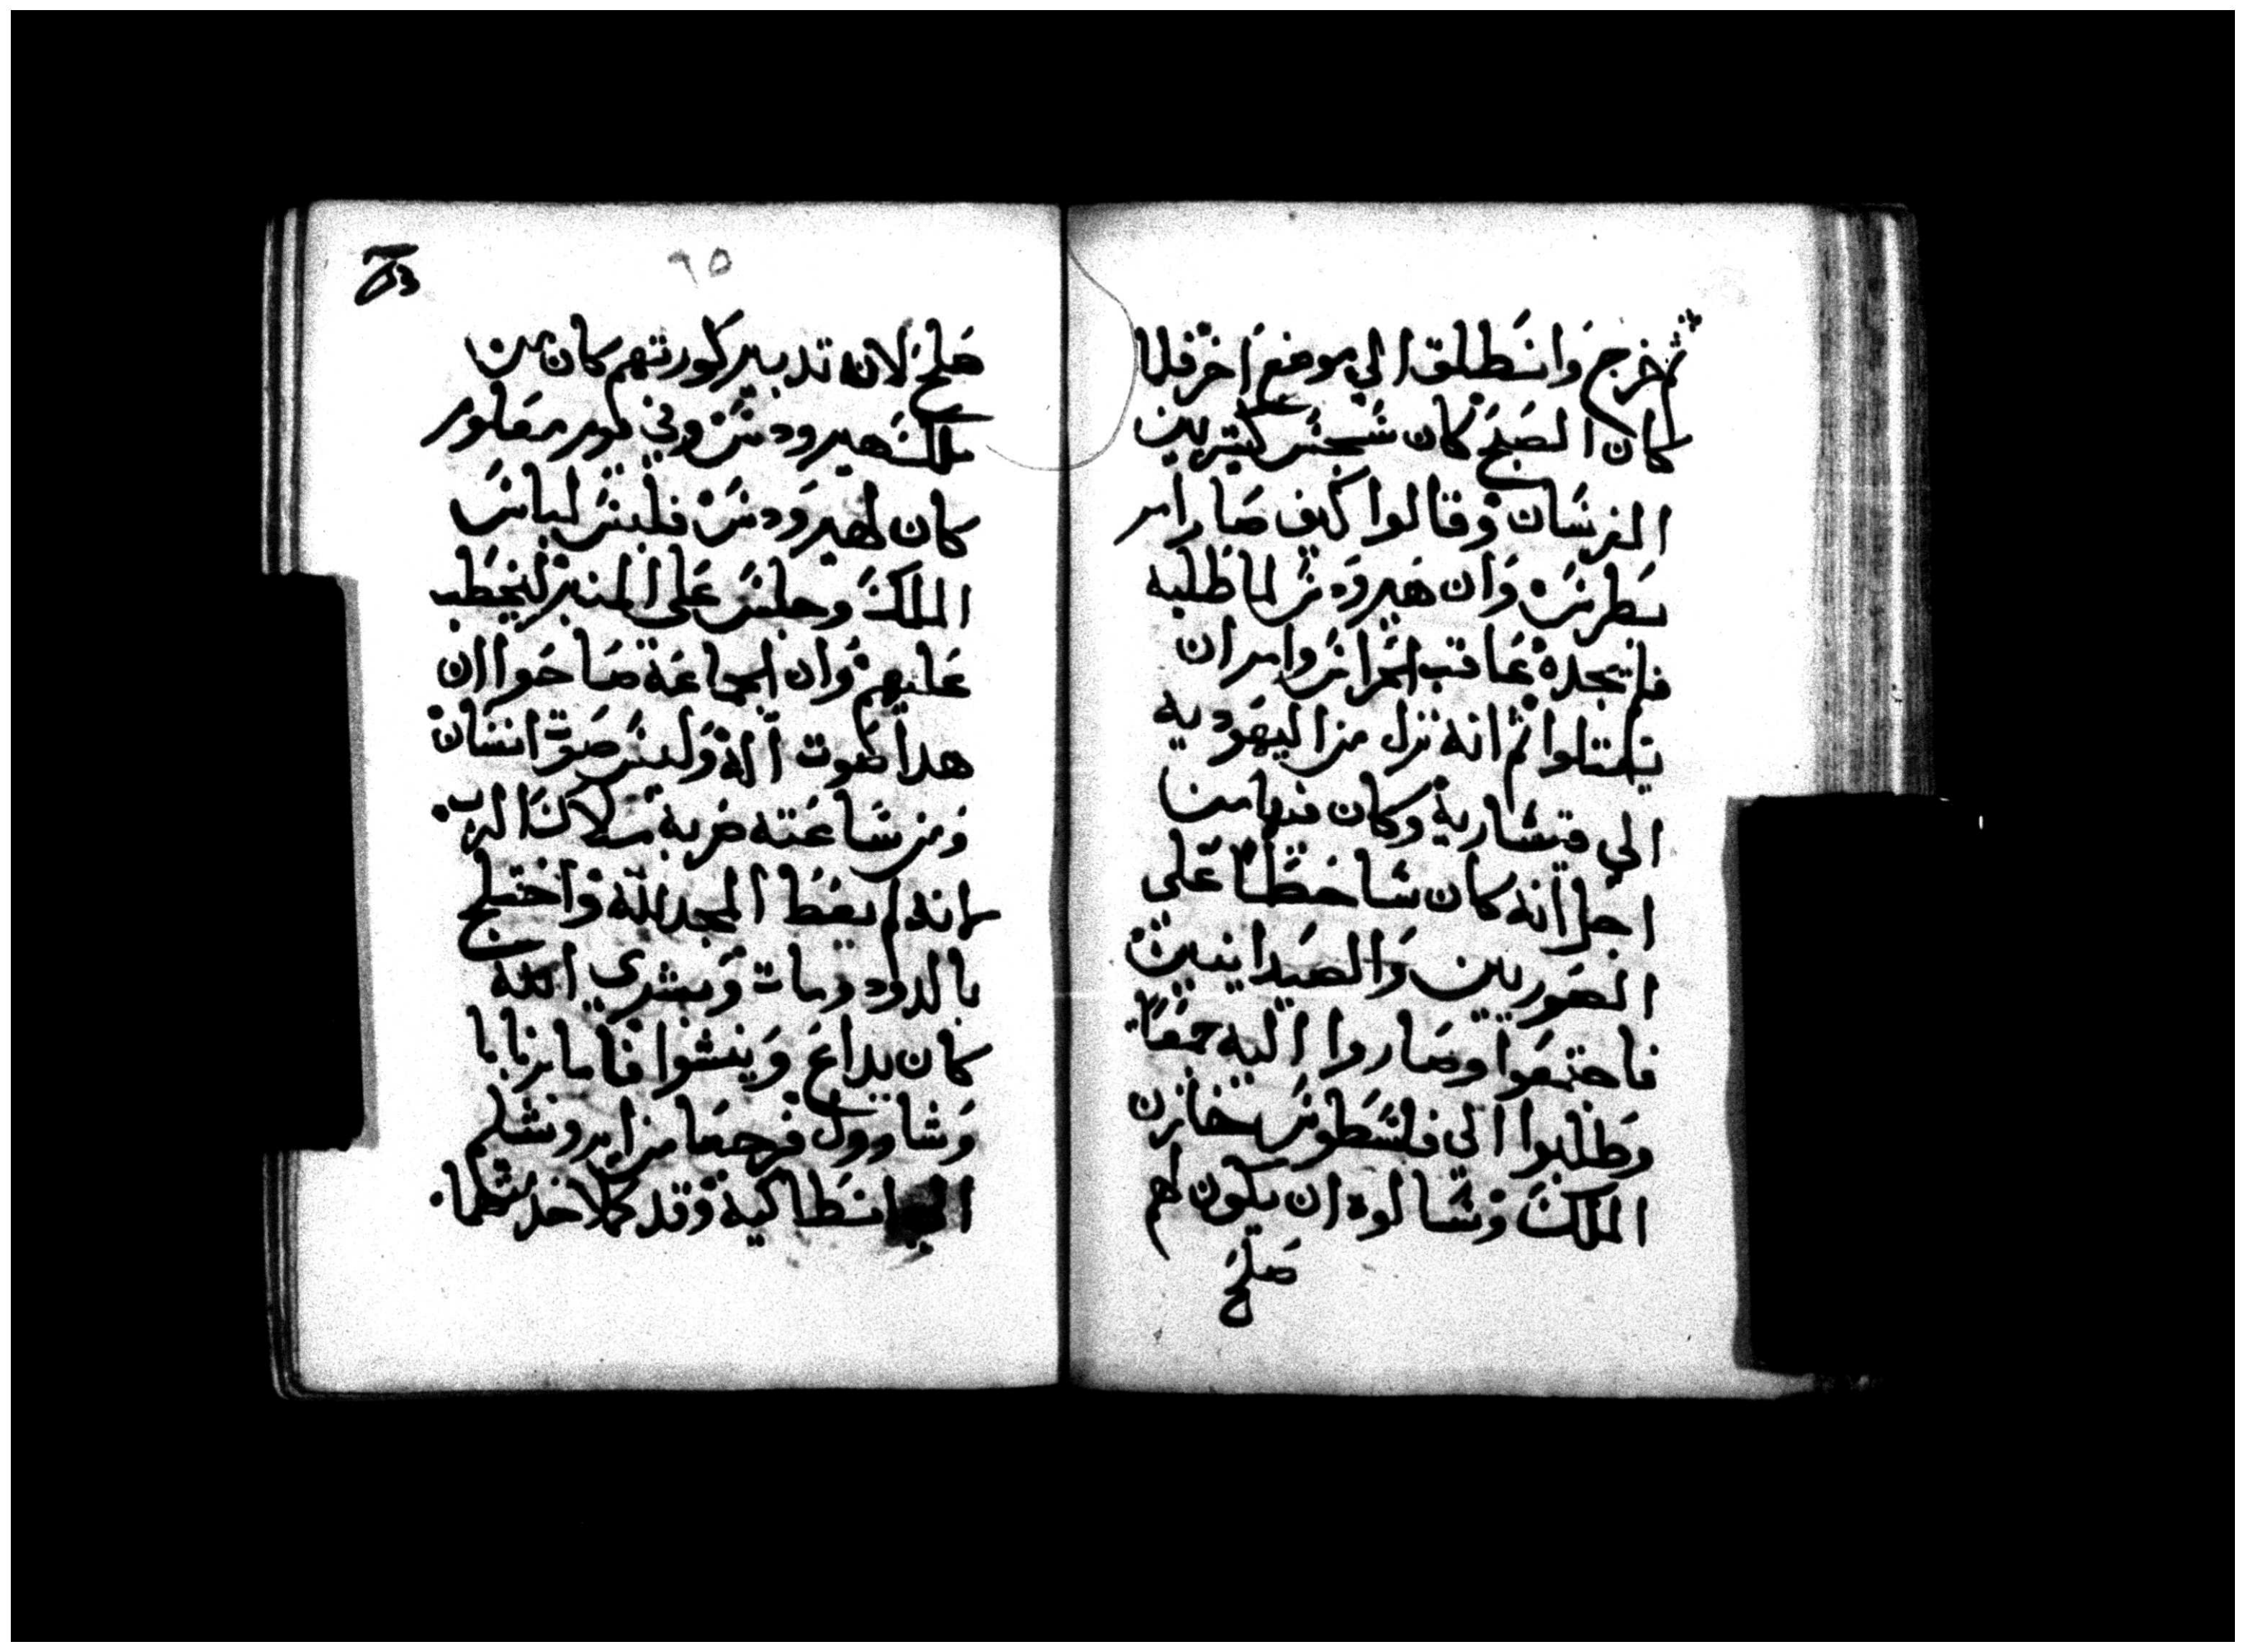 ثم خرج وانطلق الي موضع اخر فلما
كان الصبح كان شجس كثير بين
الفرسان وقالوا كيف صار امر
بطرس وان هيرودس لما طلبه
فلم يجده عاقب الحراس وامر ان
يقتلوا ثم انه نزل من اليهودية
الي قيسارية وكان فيها من
اجل انه كان ساخطا علي
الصوريين والصيدانيين
فاجتمعوا وصاروا اليه جمعا
وطلبوا الي فلسطوس خازن
الملك وسالوه ان يكون لهم
صلح
٦٥
صلح لان تدبير كورتهم كان من
ملك هيرودس وفي يوم معلوم
كان لهيرودس فلبس لباس
الملك وجلس علي المنبر ليخطب
عليهم وان الجماعة صاحوا ان
هدا صوت اله وليس صوت انسان
ومن ساعته ضربه ملاك الرب
لانه لم يعط المجد لله واختلج
بالدود ومات وبشري الله
كان يداع وينشوا فاما برنابا
وشاوول فرجعا من ايروشليم
الي انطاكية وقد كملا خدمتهما